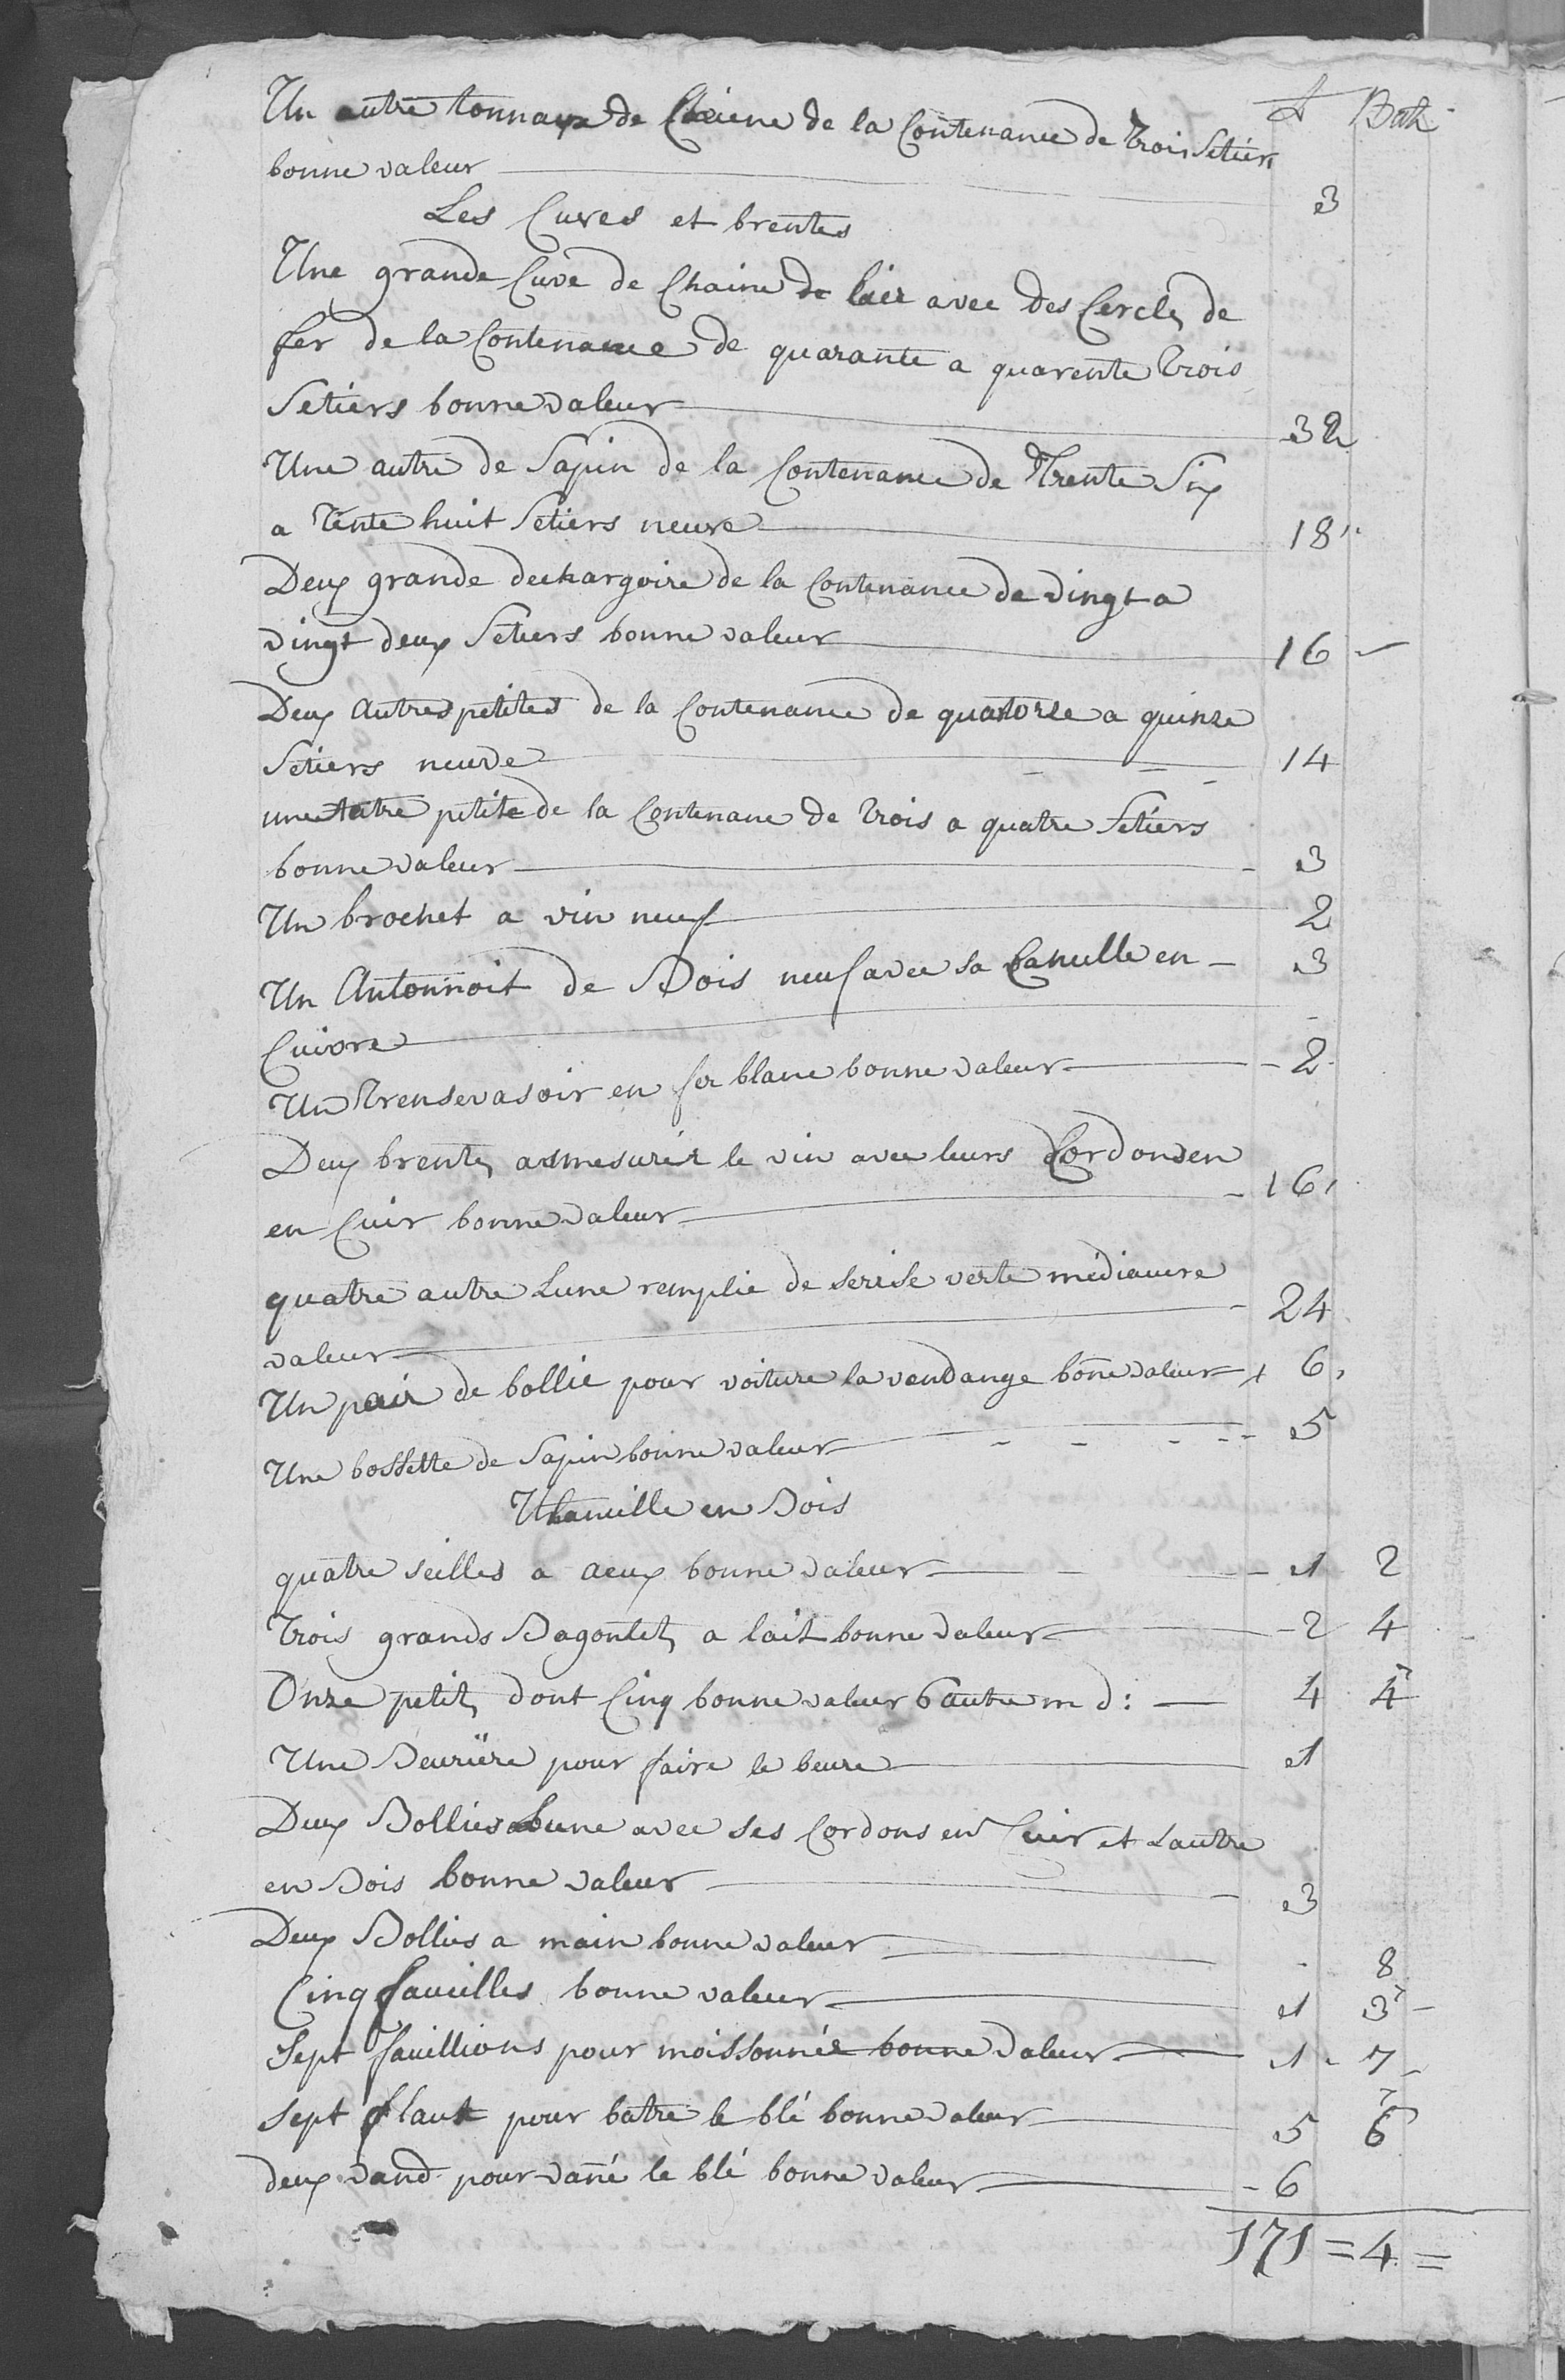 L Batz
Un autre tonnaux de Chaiene de la Contenance de trois Setiers
bonne valeur 3
Les Cuves et brentes
Une grande Cuve de Chaine de lier avec des Cercles de
fer de la Contenance de quarante a quarente trois
Setiers bonne valeur 32
Une autre de Sapin de la Contenance de Trente Six
a Tente huit Setiers neuve 18
Deux grande dechargoire de la Contenance de vingt a
vingt deux Setiers bonne valeur 16
Deux autres petites de la Contenance de quatorze a quinze
Setiers neuve 14
une autre petite de la Contenane de trois a quatre Setiers
bonne valeur 3
Un brochet a vin neuf 2
Un Antonnoit de Bois neuf avec sa Canulle en 3
Cuivre
Un trensevasoir en fer blanc bonne valeur 2
Deux brentes a mesurér le vin avec leurs Cordons en
en Cuir bonne valeur 16
quatre autre Lune remplie de serise verte mediaucre
valeur 24
Un pair de bollie pour voiture la vendange bone valeur 6
Une bossette de Sapin bonne valeur 5
Uttancille en Bois
quatre seilles a aeux bonne valeur 1 2
Trois grands Bagontets a lait bonne valeur 2 4
Onze petits dont Cinq bonne valeur 6 autre m d: 4 4
Une Beurière pour faire le beure 1
Deux Bollies Lune avec ses Cordons en Cuir et Lautre
en Bois bonne valeur 3
Deux Bollies a main bonne valeur - 8
Cinq faucilles bonne valeur 1 3
Sept faucillions pour moissonnér bonne valeur 1 7
Sept flaux pour batre le blé bonne valeur 5 6
deux vand pour vañé le blé bonne valeur 6
171 = 4 =